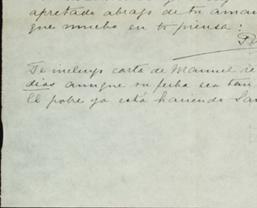 apretado abrazo de tu aman
que mucho en ti piensa:
Te incluyo carta de Manuel re
días aunque su fecha sea tan
El pobre ya está haciendo San